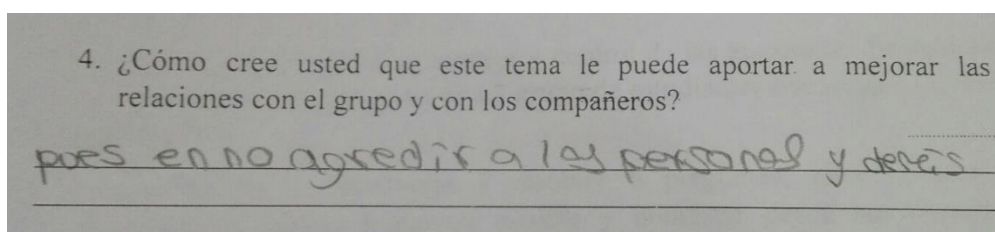 4. ¿Cómo cree usted que este tema le puede aportar a mejorar las
relaciones con el grupo y con los compañeros?
pues en no agredir a las personas y demás